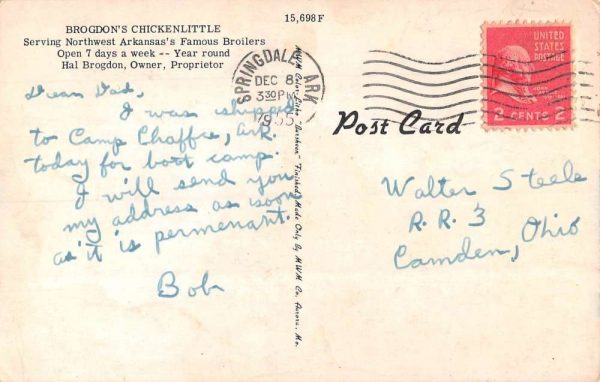 15,698F
BROGDON'S CHICKENLITTLE
Serving Northwest Arkansas's Famous Broilers
Open 7 days a week -- Year round
Hal Brogdon, Owner, Proprietor
SPRINGDALE, ARK
DEC 8
3 30 PM
1955
UNITED
STATES
POSTAGE
2 CENTS 2
Post Card
Dear Dad,
I was shipped
to Camp Chaffee, Ark
today for boot camp.
I will send you
my address as soon
as it is permenant.
Bob
Walter Steele
R. R. 3
Camden, Ohio
M.W.M. Color-Litho "Dersheen" Finished Made Only By M.W.M. Co. Aurora, Mo.